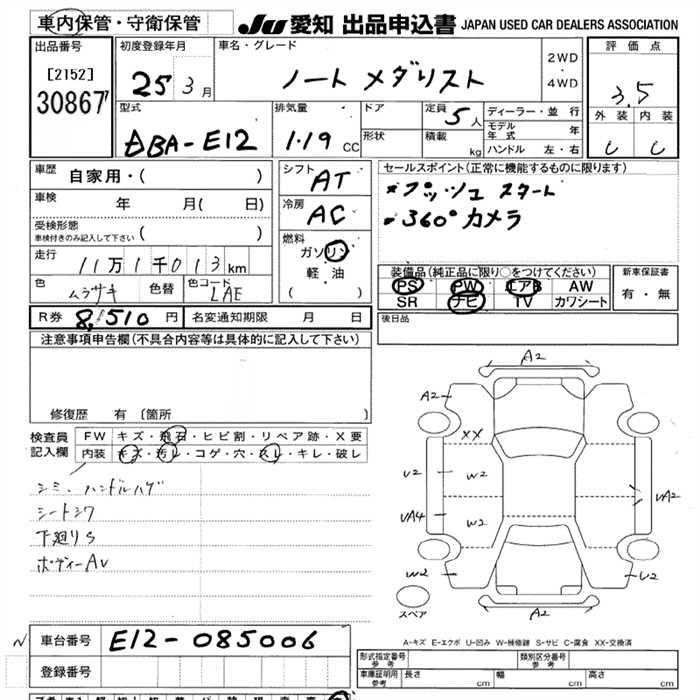 車内保管・守衛保管
JU 愛知 出品申込書 JAPAN USED CAR DEALERS ASSOCIATION
出品番号
[2152]
30867
初度登録年月
25 3月
車名・グレード
ノート メダリスト
2WD
・
4WD
評価点
3.5
外装 内装
C C
型式
DBA-E12
排気量
1.19 CC
ドア
形状
定員 5人
積載 kg
ディーラー・並行
モデル年式 年
ハンドル 左・右
車歴 自家用・( )
車検 年 月( 日)
受検形態
車検付きのみ記入して下さい ( )
走行 11万1千013km
色 ムラサキ 色替 色コード LAE
シフト AT
冷房 AC
燃料
ガソリン
軽油
( )
セールスポイント(正常に機能するものに限ります)
プッシュスタート
360°カメラ
装備品(純正品に限り○をつけてください)
PS PW エアB AW
SR ナビ TV カワシート
新車保証書
有・無
後日品
R券 8,510円 名変通知期限 月 日
注意事項申告欄(不具合内容等は具体的に記入して下さい)
修復歴 有 [箇所 ]
検査員
記入欄
FW キズ・飛石・ヒビ割・リペア跡・X要
内装 キズ・汚レ・コゲ・穴・スレ・キレ・破レ
シミ、ハンドルハゲ
シートシワ
下廻りS
ボディーAU
A2
A2
XX
U2 W2
UA2
UA4 W2
W2
U2
スペア
A2
A-キズ E-エクボ U-凹み W-補修跡 S-サビ C-腐食 XX-交換済
N
車台番号 E12-085006
登録番号
形式指定番号
参考
類別区分番号
参考
車庫証明用
参考
長さ cm 幅 cm 高さ cm